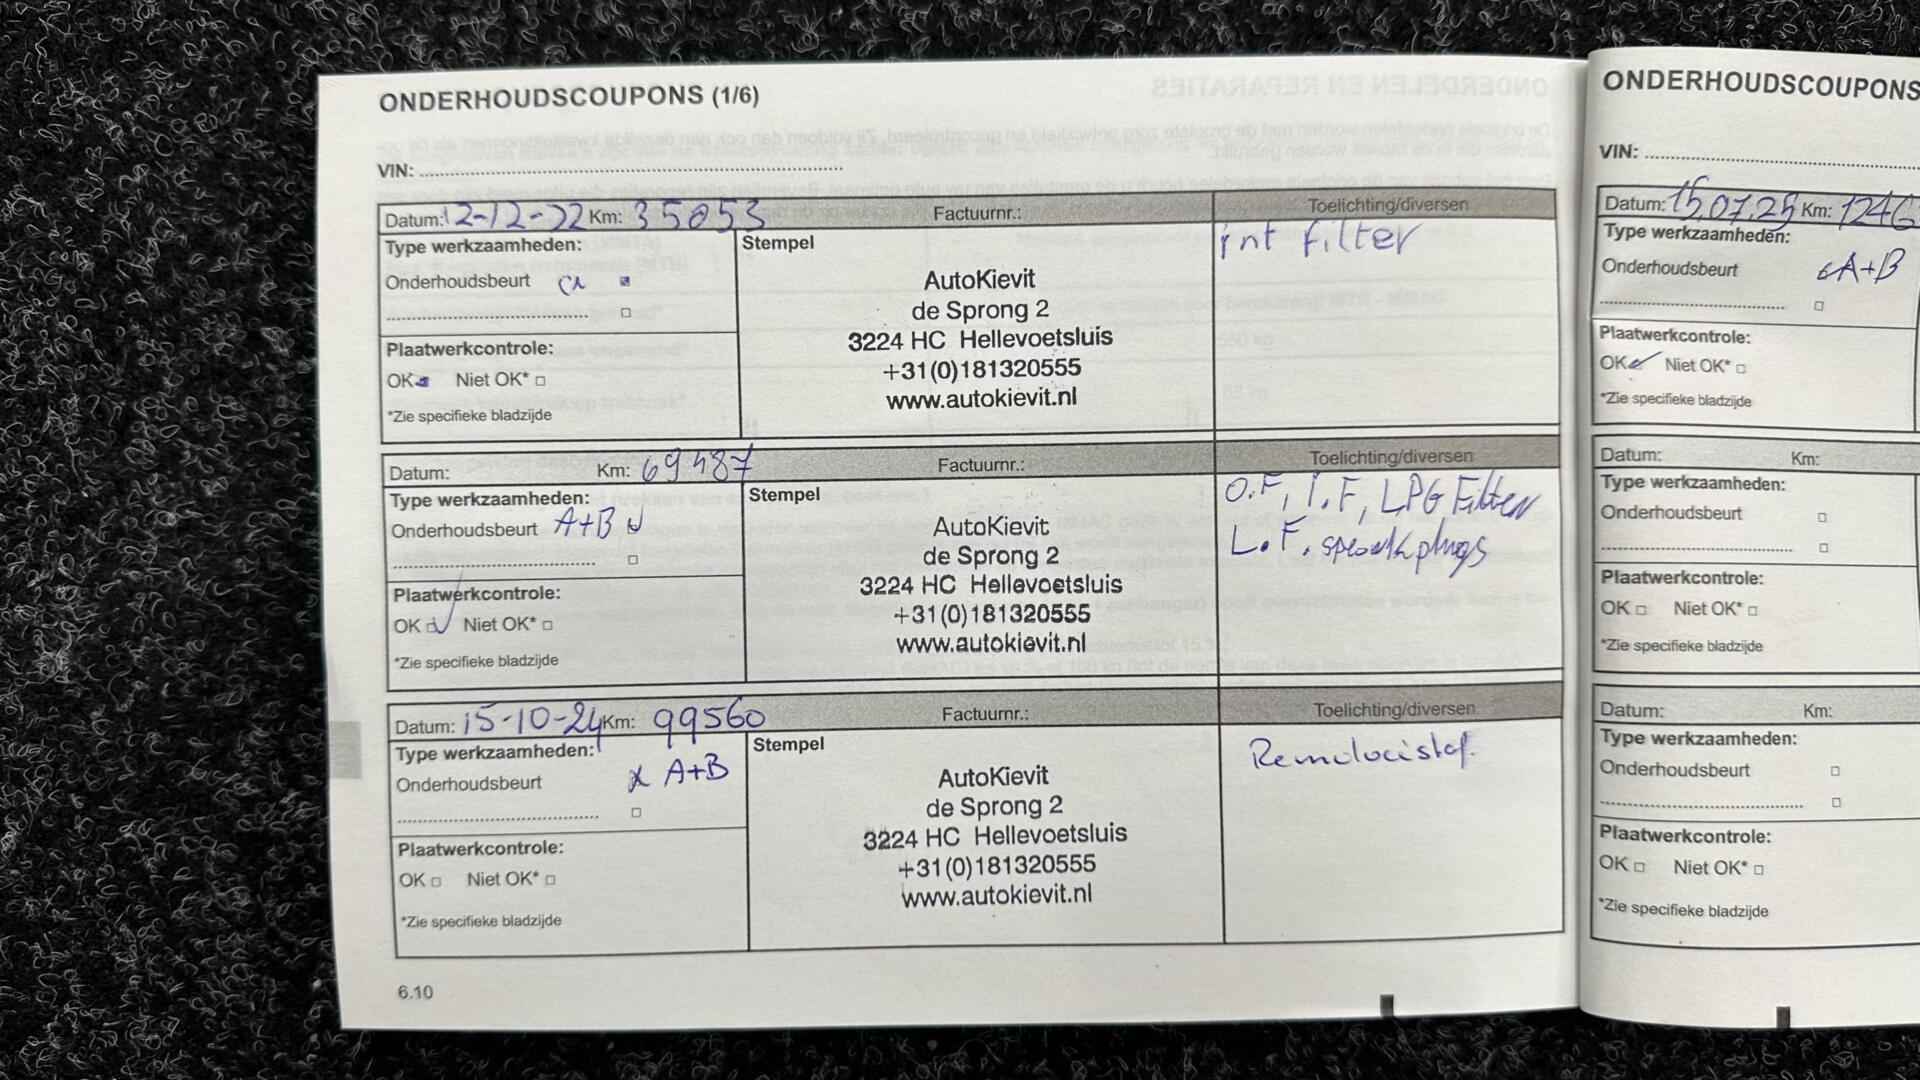 ONDERHOUDSCOUPONS (1/6)
VIN:
Datum: 12-12-22 Km: 35053 Factuurnr.: Toelichting/diversen
Type werkzaamheden: Stempel int filter
Onderhoudsbeurt
AutoKievit
de Sprong 2
3224 HC Hellevoetsluis
+31(0)181320555
www.autokievit.nl
Plaatwerkcontrole:
OK Niet OK*
*Zie specifieke bladzijde
Datum: Km: 69487 Factuurnr.: Toelichting/diversen
Type werkzaamheden: Stempel O.F, I.F, LPG Filter
Onderhoudsbeurt A+B L.F. spearkplugs
AutoKievit
de Sprong 2
3224 HC Hellevoetsluis
+31(0)181320555
www.autokievit.nl
Plaatwerkcontrole:
OK Niet OK*
*Zie specifieke bladzijde
Datum: 15-10-24 Km: 99560 Factuurnr.: Toelichting/diversen
Type werkzaamheden: Stempel
Onderhoudsbeurt x A+B
AutoKievit
de Sprong 2
3224 HC Hellevoetsluis
+31(0)181320555
www.autokievit.nl
Plaatwerkcontrole:
OK Niet OK*
*Zie specifieke bladzijde
6.10
ONDERHOUDSCOUPONS
VIN:
Datum: 15.07.25 Km: 1246
Type werkzaamheden:
Onderhoudsbeurt A+B
Plaatwerkcontrole:
OK Niet OK*
*Zie specifieke bladzijde
Datum: Km:
Type werkzaamheden:
Onderhoudsbeurt
Plaatwerkcontrole:
OK Niet OK*
*Zie specifieke bladzijde
Datum: Km:
Type werkzaamheden:
Onderhoudsbeurt
Plaatwerkcontrole:
OK Niet OK*
*Zie specifieke bladzijde